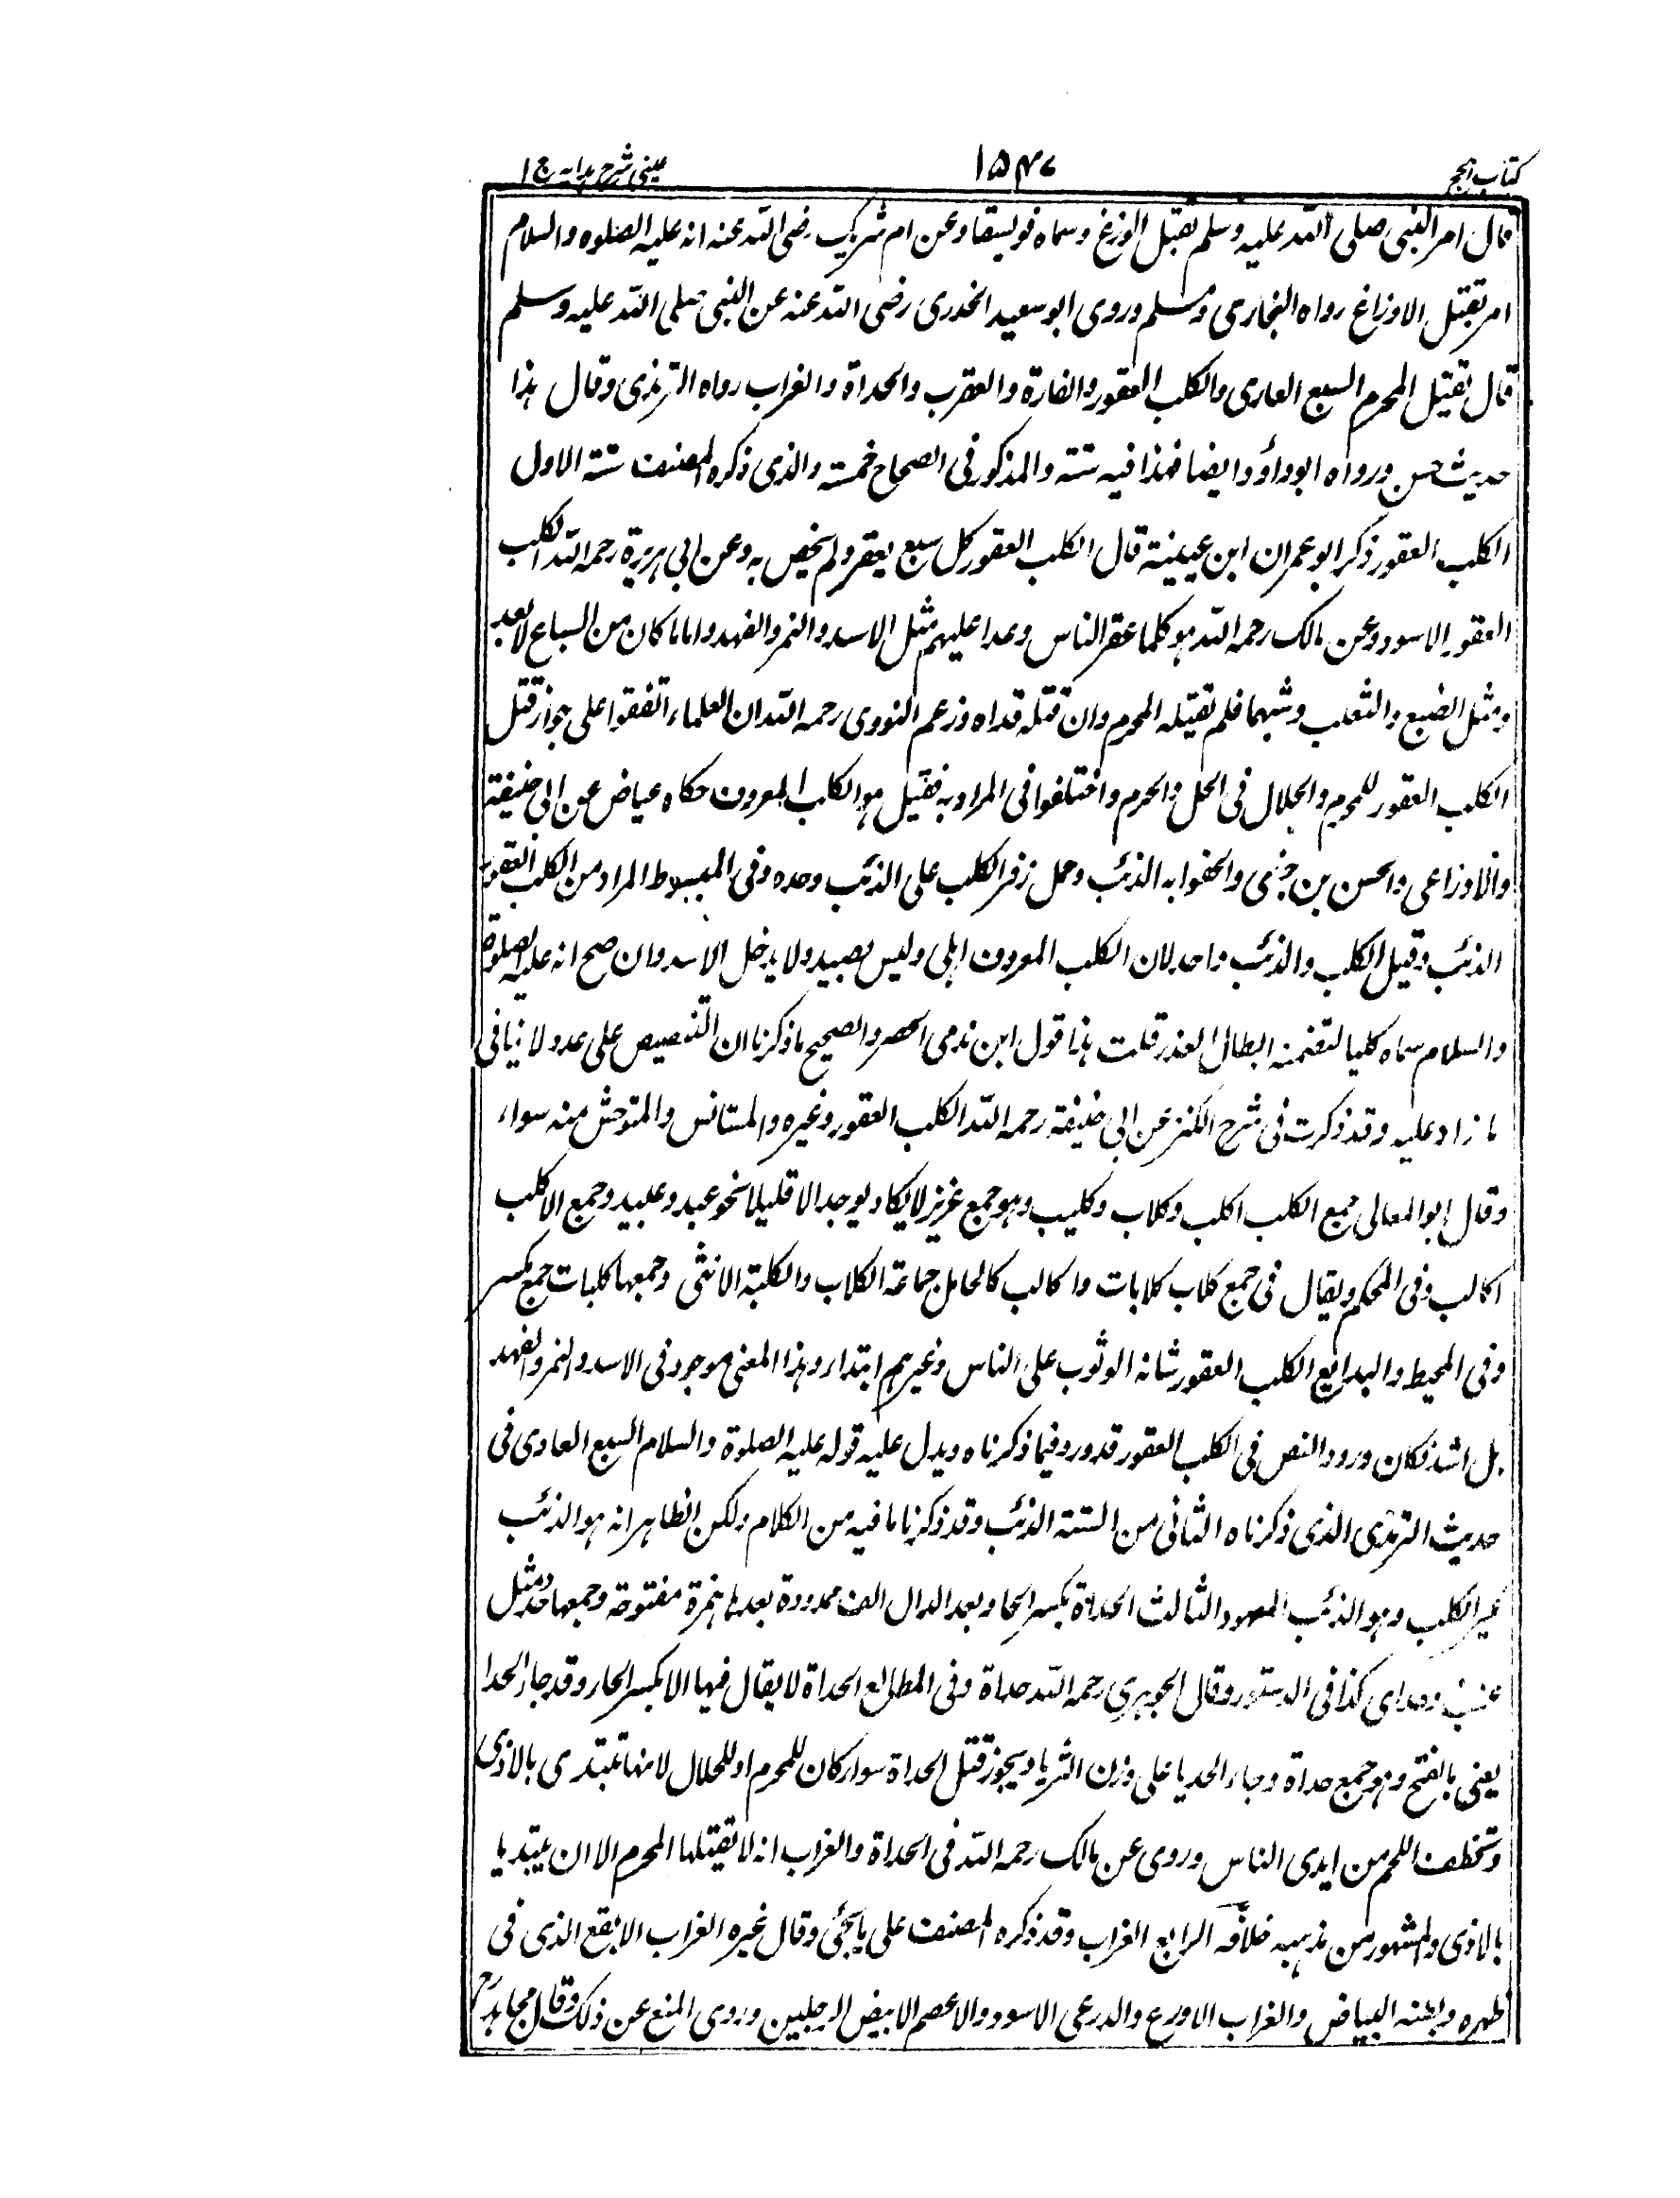 كتاب الحج
١٥٤٧
عينى شرح هدايه ج ١
قال امر النبى صلى الله عليه وسلم بقتل الوزغ وسماه فويسقا وعن ام شريك رضى الله عنه انه عليه الصلوه والسلام
امر بقتل الاوزاغ رواه البخارى ومسلم وروى ابو سعيد الخدرى رضى الله عنه عن النبى صلى الله عليه وسلم
قال يقتل المحرم السبع العادى والكلب العقور والفارة والعقرب والحداة والغراب رواه الترمذى وقال هذا
حديث حسن ورواه ابو داؤد ايضا فهذا فيه ستة والمذكور فى الصحاح خمسة والذى ذكره المصنف ستة الاول
الكلب العقور ذكر ابو عمران ابن عيينة قال الكلب العقور كل سبع يعقر ولم يخص به وعن ابى هريرة رحمه الله الكلب
العقور الاسود وعن مالك رحمه الله هو كلما عقر الناس وعدا عليهم مثل الاسد والنمر والفهد واما ما كان من السباع لا يعد
ومثل الضبع والثعلب وشبهما فلم يقتله المحرم وان قتله فداه وزعم النووى رحمه الله ان العلماء اتفقوا على جواز قتل
الكلب العقور للمحرم والحلال فى الحل والحرم واختلفوا فى المراد به فقيل هو الكلب المعروف حكاه عياض عن ابى حنيفة
والاوزاعى والحسن بن حى والحقوا به الذئب وحمل زفر الكلب على الذئب وحده وفى المبسوط المراد من الكلب العقور
الذئب وقيل الكلب والذئب واحد لان الكلب المعروف اهلى وليس بصيد ولا يدخل الاسد وان صح انه عليه الصلوة
والسلام سماه كلبا لتضمنه ابطال العذر قلت هذا قول ابن ندمى الحصر والصحيح ما ذكرنا ان التنصيص على عدد لا ينافى
ما زاد عليه وقد ذكرت فى شرح الكنز عن ابى حنيفة رحمه الله الكلب العقور وغيره والمستانس والمتوحش منه سواء
وقال ابو المعالى جمع الكلب اكلب وكلاب وكليب وهو جمع عزيز لا يكاد يوجد الا قليلا نحو عبد وعبيد وجمع الاكلب
اكالب وفى المحكم ويقال فى جمع كلاب كلابات واكالب كالحامل جماعة الكلاب والكلبة الانثى وجمعها كلبات جمع مكسر
وفى المحيط والبدايع الكلب العقور شانه الوثوب على الناس وغيرهم ابتداء وهذا المعنى موجود فى الاسد والنمر والفهد
بل اشد فكان ورود النص فى الكلب العقور قد ورد فيما ذكرناه ويدل عليه قوله عليه الصلوة والسلام السبع العادى فى
حديث الترمذى الذى ذكرناه الثانى من الستة الذئب وقد ذكرنا ما فيه من الكلام ولكن الظاهر انه هو الذئب
غير الكلب وهو الذئب المعهود الثالث الحداة بكسر الحا وبعد الدال الف ممدودة بعدها همزة مفتوحة وجمعها حدد مثل
عنب وحداى كذا فى الدستور وقال الجوهرى رحمه الله حداة وفى المطالع الحداة لا يقال فيها الا بكسر الحاء وقد جاء الحدا
يعنى بالفتح وهو جمع حداة وجاء الحديا على وزن الثريا ويجوز قتل الحداة سواء كان للمحرم او للحلال لانها تبتدى بالاذى
وتخطف اللحم من ايدى الناس وروى عن مالك رحمه الله فى الحداة والغراب انه لا يقتلها المحرم الا ان يبتديا
بالاذى والمشهور من مذهبه خلافه الرابع الغراب وقد ذكره المصنف على ما يجئى وقال غيره الغراب الابقع الذى فى
ظهره وبطنه البياض والغراب الاورع والدرعى الاسود والاعصم الابيض الرجلين وروى المنع عن ذلك وقال مجاهد رح